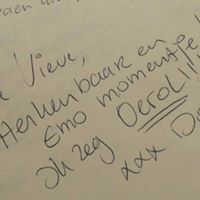 Vieve,
Herkenbaar en
Emo momentje!
Ik zeg Oerol!!!
xxx D